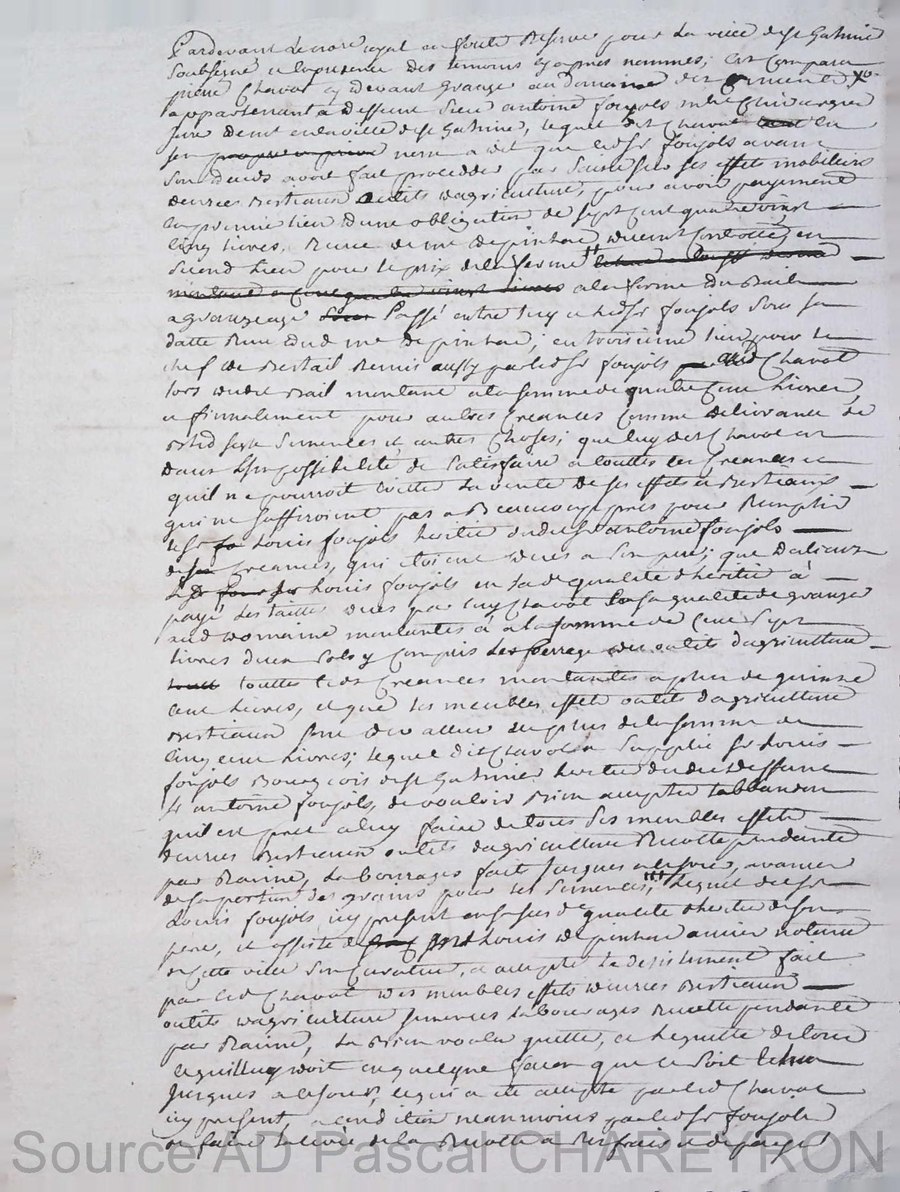 Pardevant le no.re royal en forêts Reservé pour La ville de st Galmier
Soubsigné et En presence des temoins cy apres nommés; Est Comparu
pierre Chavat cy devant Granger au domaine des
appartenant a deffunt sieur antoine foujols m.re Chirurgien
juré de cette ville de st Galmier, lequel dit Chavat en
son nom a dit que led. sr foujols avant
son deceds avoit fait proceder par saisie sur ses effets mobiliers
denrees Bestiaux outils d'agriculture, pour avoir payement
en premier lieu d'une obligation de sept cent quatre vingt
Cinq livres, Recue de me depinhac duement Controllée, en
second lieu pour le prix de la ferme
a la forme du Bail
a grangeage passé entre luy et led. sr foujols sous sa
datte Recu dud. me depinhac; en troisieme lieu pour le
chef de Bestail Remis aussy par led. sr foujols aud. Chavat
lors dudit Bail montant a la somme de quatre Cent Livres,
et finnalement pour autres Creances Comme delivrance de
Bled seigle semences et autres Choses; que luy dit Chavat est
dans l'impossibilité de satisfaire a touttes ces Creances et
quil ne pourroit eviter La vente de ses effets et Bestiaux
qui ne suffiroient pas a Beaucoup pres pour Remplir
le sr Louis foujols heritier dudit sr antoine foujols
des Creances, qui etoient dues a son pere; que D'alieurs
Louis foujols en sa de qualité d'heritier a
payé Les tailles dues par luy Chavat En sa qualité de granger
aud. domaine montantes a la somme de Cent sept
livres deux sols y Compris Les ferrage des outils d'agriculture
touttes lesd. Creances montantes a plus de quinze
Cent livres, et que les meubles effets outils d'agriculture
Bestiaux sont de valleur au plus de la somme de
Cinq cent livres; lequel dit Chavat a supplié sr Louis
foujols Bourgeois de st Galmier heritier dudit deffunt
sr antoine foujols, de vouloir Bien accepter l'abandon
quil est pret a luy faire de tous ses meubles effets
denrees Bestiaux outils d'agriculture Recolte pendante
par Racine, Labourages faits jusques a ce jour, avances
de sa portion des grains pour les semences, Lequel dit sr
Louis foujols icy present en sa sus de qualité d'heritier de son
pere, et assisté de Louis depinhac ancien notaire
de Cette ville son Curateur, a accepté Le desistement fait
par led. Chavat des meubles effets denrees Bestiaux
outils d'agriculture semences Labourages Recolte pendante
par Racine, La Bien voulu quitter, et le quitte de tout
ce quil luy doit en quelque façon que ce soit
jusques a ce jour, ce qui a été accepté par led. Chavat
icy present, a condition neanmoins par led. sr foujols
de faire la levée de la Recolte a ses frais et depens
Source AD Pascal CHAREYRON